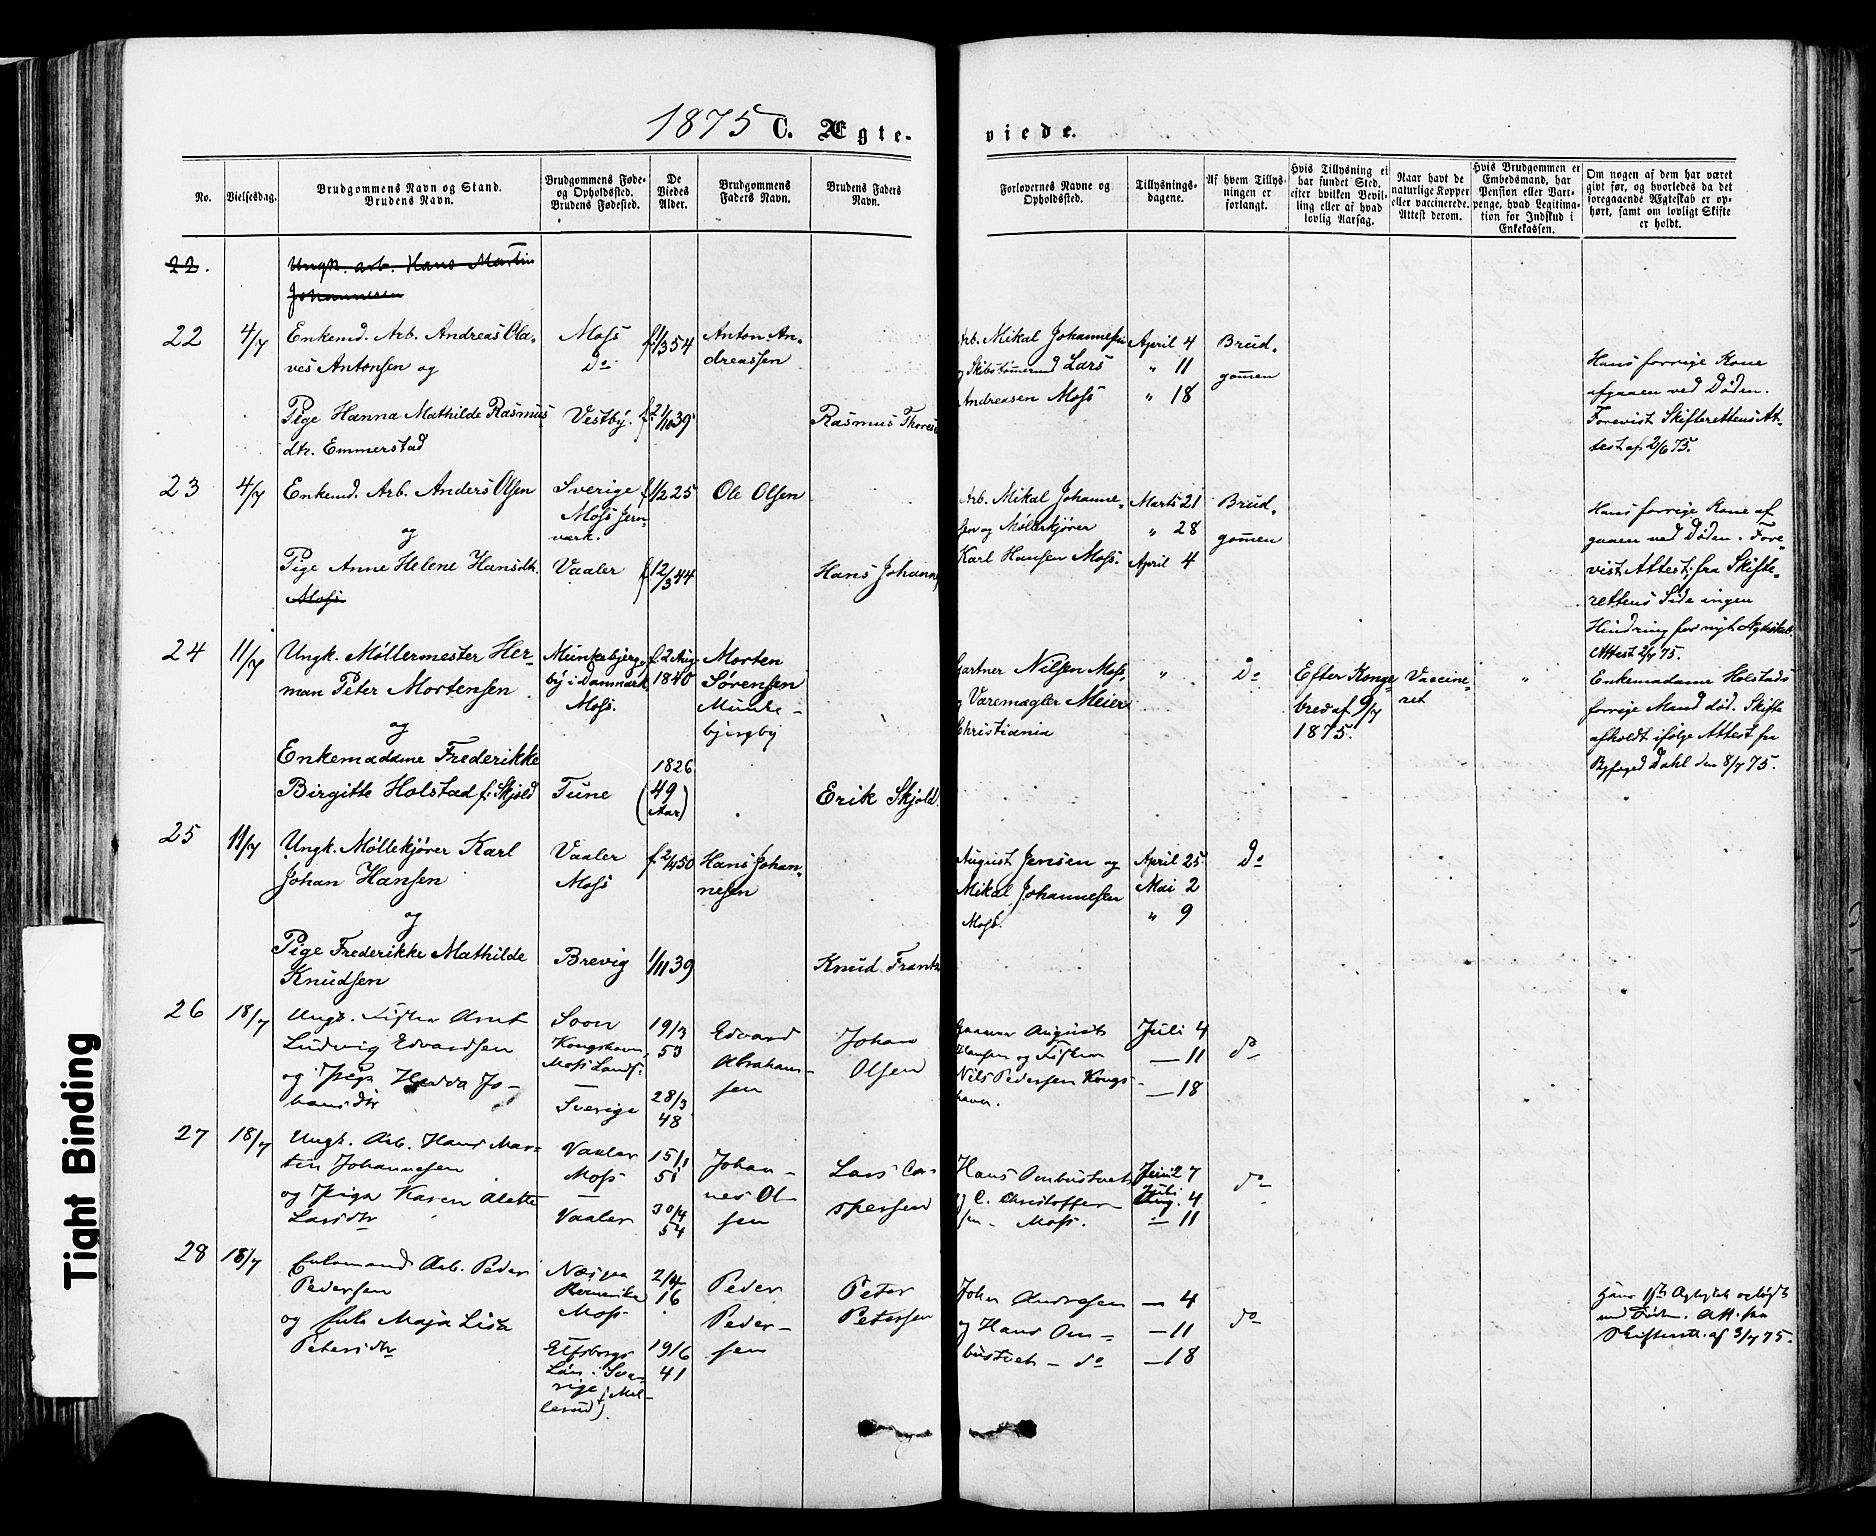 1875 C. Ægte-
viede.
No.
Vielsesdag.
Brudgommens Navn og Stand.
Brudens Navn.
Brudgommens Føde-
og Opholdssted.
Brudens Fødested.
De
Viedes
Alder.
Brudgommens
Faders Navn.
Brudens Faders
Navn.
Forlovernes Navne og
Opholdssted.
Tillysnings-
dagene.
Af hvem Tillys-
ningen er
forlangt.
Hvis Tillysning ei
har fundet Sted,
efter hvilken Bevil-
ling eller af hvad
lovlig Aarsag.
Naar havt de
naturlige Kopper
eller vaccinerede.
Attest derom.
Hvis Brudgommen er
Embedsmand, har
Pension eller Vart-
penge, hvad Legitima-
tion for Indskud i
Enkekassen.
Om nogen af dem har været
givt før, og hvorledes da det
foregaaende Ægteskab er op-
hørt, samt om lovligt Skifte
er holdt.
22.
Ungk. arb. Hans Martin
Johannesen
22
4/7
Enkemd. Arb. Andreas Ola-
ves Antonsen og
Pige Hanna Mathilde Rasmus
dtr. Emmerstad
Moss
Do
Vestby.
f. 1/3 54
f. 21/10 39
Anton An-
dreassen
Rasmus Thores
Arb. Mikal Johannesen
og Skibstømmermd Lars
Andreasen Moss
April 4
" 11
" 18
Brud-
gommen
Hans forrige Kone
afgaaen ved Døden.
Forevist Skifterettens At-
test af 2/6 75.
23
4/7
Enkemd. Arb. Anders Olsen
og
Pige Anne Helene Hansdtr.
Moss
Sverige
Moss Jern-
værk.
Vaaler
f. 1/2 25
f. 12/3 44
Ole Olsen
Hans Johann
Arb. Mikal Johanne-
sen og Møllekjører
Karl Hansen Moss.
Marts 21
" 28
April 4
Brud-
gommen
Hans forrige Kone af
gaaen ved Døden. Fore-
vist Attest; fra Skifte-
rettens Side ingen
Hindring for nyt Ægteskab.
Attest 2/7 75.
24
11/7
Ungk. Møllermester Her-
man Peter Mortensen
og
Enkemadame Frederikke
Birgitte Holstad f. Skjold
Munkebjerg-
by i Danmark
Moss.
Tune
f. 2 Aug
1840
1826
(49
Aar)
Morten
Sørensen
Munke-
bjergby
Erik Skjold.
Gartner Nilsen Moss,
og Varemægler Meier
Christiania
"
Do
Efter Konge
brev af 9/7
1875.
Vaccine-
ret
"
Enkemadame Holstads
forrige Mand død. Skifte
afholdt ifølge Attest fra
Byfoged Dahl den 8/7 75.
25
11/7
Ungk. Møllekjører Karl
Johan Hansen
og
Pige Frederikke Mathilde
Knudsen
Vaaler
Moss
Brevig
1/11 39
Hans Johan-
nesen
Knud Frantz
August Jensen og
Mikal Johannesen
Moss.
April 25
Mai 2
" 9
Do
26
18/7
Ungk. Fisker Arnt
Ludvig Edvardsen
og Pige Hedda Jo-
hansdtr
Soon
Kongshavn,
Moss Lands.
—
Sverige
19/3
53
28/3
48
Edvard
Abraham-
sen
Johan
Olsen
August
Hansen og Fisker
Nils Pedersen Kongs-
havn.
Juli 4
— 11
— 18
do
27
18/7
Ungk. Arb. Hans Mar-
tin Johannesen
og Pige Karen Alette
Larsdtr
Vaaler
Moss
—
Vaaler
15/1
51
30/4
54
Johan-
nes Ol-
sen
Lars Ca-
spersen
Hans Ombustvet
og C. Christoffer-
sen - Moss.
Juni 27
Juli
Aug. 4
— 11
do
28
18/7
Enkemand Arb. Peder
Pedersen
og Enke Maja Lisa
Petersdtr
Næs paa
Romerike
Moss
Elfsborgs
Län i Sve-
rige (Mel-
lerud).
2/4
16
19/6
41
Peder
Peder-
sen
Peter
Petersen
Johan Andresen
og Hans Om-
bustvet - do
— 4
— 11
— 18
do
Hans 1ste Ægteskab opløst
ved Døden. Att. fra
Skifterett. af 3/7 75.
Tight Binding